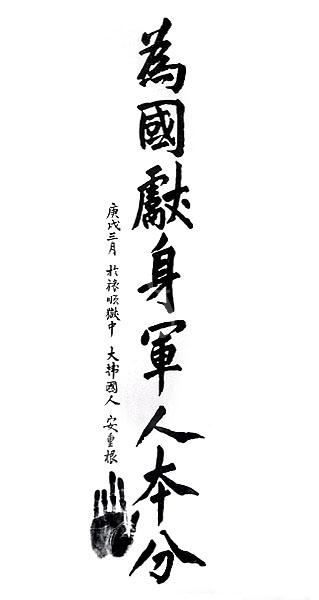 為國獻身軍人本分
庚戌三月 於旅順獄中 大韓國人 安重根